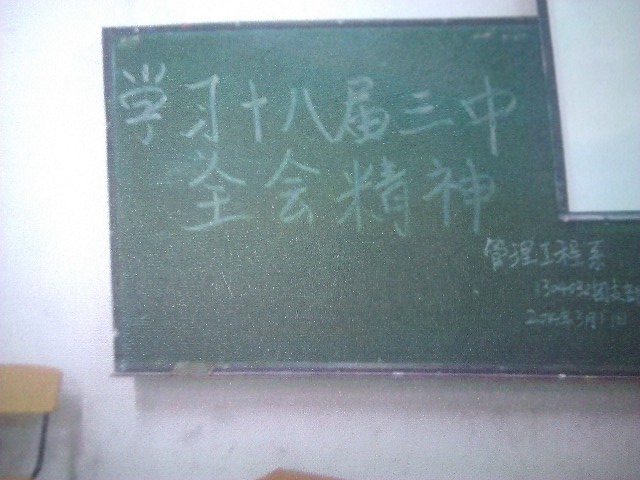 学习十八届三中
全会精神
管理工程系
1304032团支部
2014年3月1日